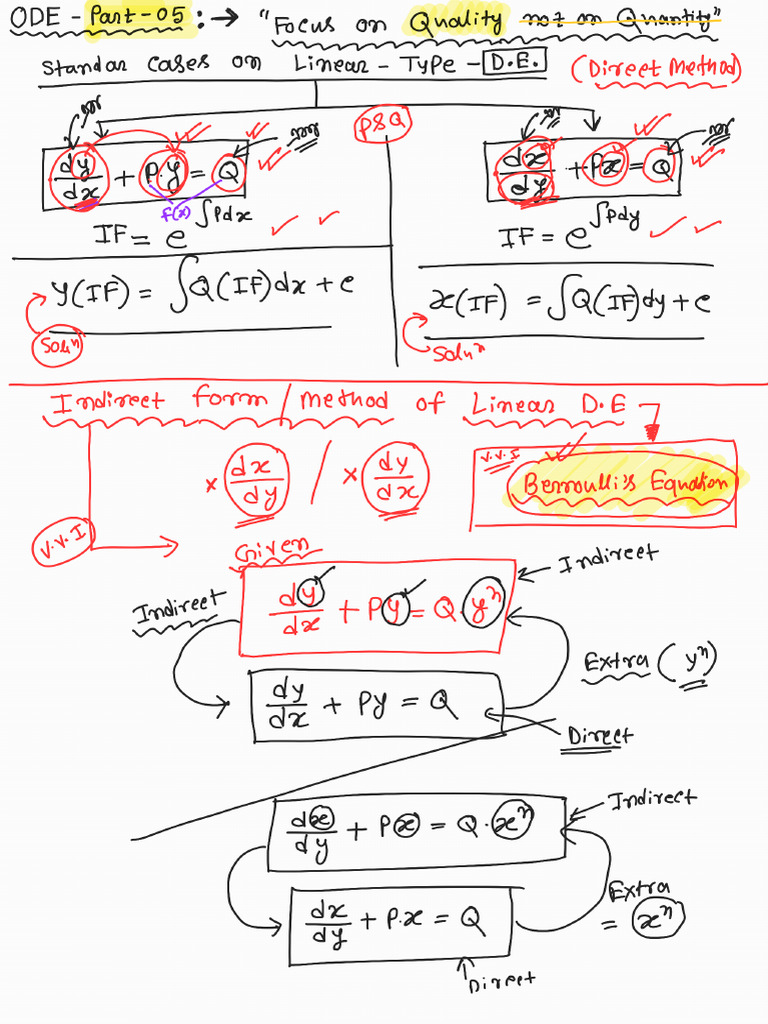 ODE - Part-05 : → "Focus on Quality not on Quantity"
Standar Cases on Linear - Type - D.E. (Direct Method)
P&Q
dy/dx + P.y = Q
f(x)
IF = e^∫Pdx
y(IF) = ∫Q(IF)dx + c
Soluⁿ
dx/dy + Px = Q
IF = e^∫Pdy
x(IF) = ∫Q(IF)dy + c
Soluⁿ
Indirect form / Method of Linear D.E
× dx/dy / × dy/dx
V.V.I
Bernoulli's Equation
V.V.I
Given
Indirect
dy/dx + Py = Q.yⁿ
Indirect
Extra (yⁿ)
dy/dx + Py = Q
Direct
dx/dy + Px = Q.xⁿ
Indirect
Extra
= xⁿ
dx/dy + P.x = Q
Direct